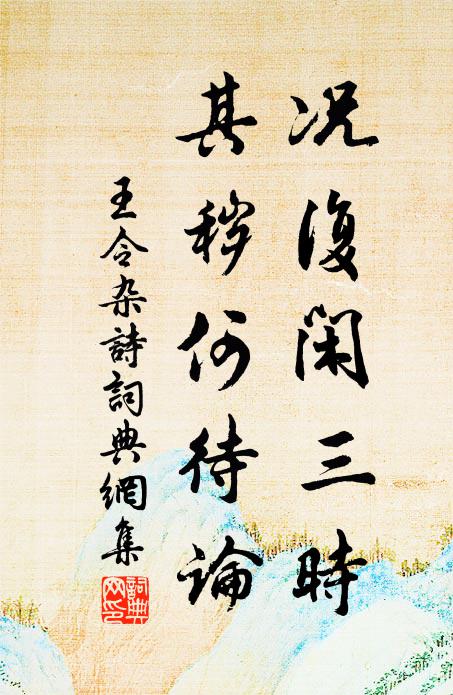 况復閑三時
其穢何待論
王令杂詩詞典網集
詞典